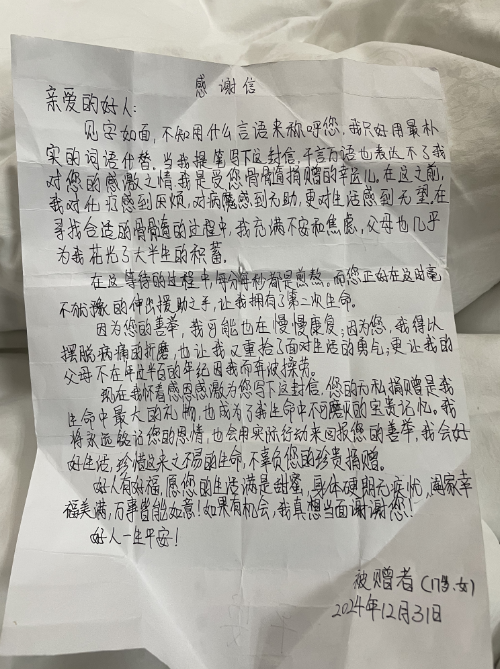 感谢信
亲爱的好人：
见字如面，不知用什么言语来称呼您，我只好用最朴
实的词语代替，当我提笔写下这封信，千言万语也表达不了我
对您的感激之情我是受您骨髓捐赠的幸运儿。在这之前，
我对化疗感到厌烦，对病魔感到无助，更对生活感到无望。在
寻找合适的骨髓的过程中，我充满不安和焦虑，父母也几乎
为我花光了大半生的积蓄。
在这等待的过程中每分每秒都是煎熬。而您正好在这时毫
不犹豫的伸出援助之手，让我拥有了第二次生命。
因为您的善举，我可能也在慢慢康复；因为您，我得以
摆脱病痛的折磨，也让我又重拾了面对生活的勇气；更让我的
父母不在年过半百的年纪因我而奔波操劳。
现在我怀着感恩感激为您写下这封信，您的无私捐赠是我
生命中最大的礼物，也成为了我生命中不可磨灭的宝贵记忆。我
将永远铭记您的恩情，也会用实际行动来回报您的善举，我会好
好生活，珍惜这来之不易的生命，不辜负您的珍贵捐赠。
好人有好福，愿您的生活满是甜蜜，身体硬朗无疾忧，阖家幸
福美满，万事皆能如意！如果有机会，我真想当面谢谢您！
好人一生平安！
被赠者（17岁、女）
2024年12月31日